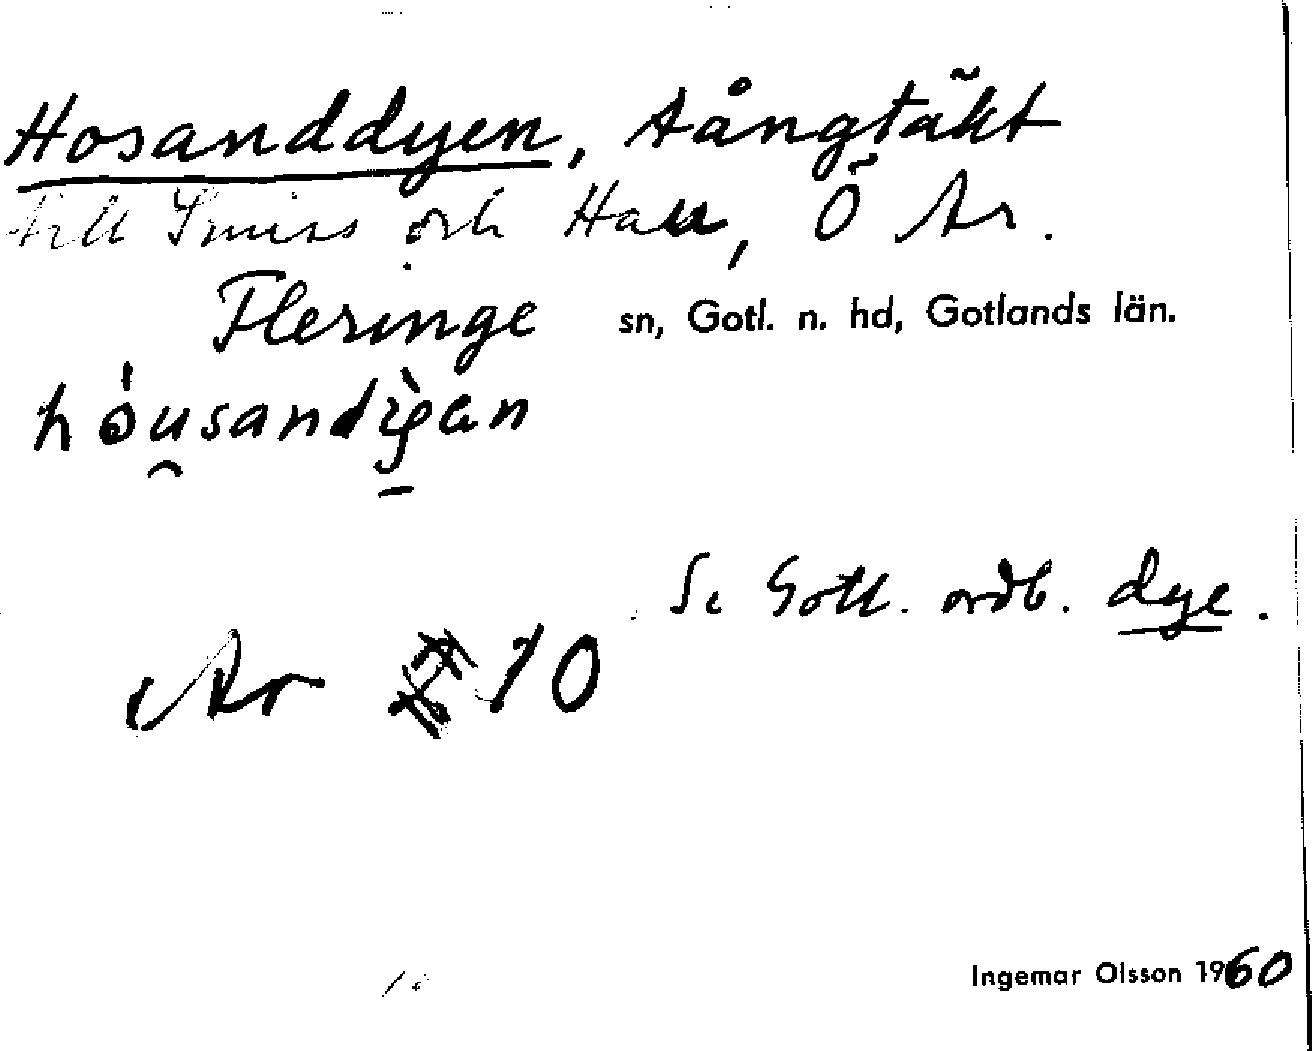 Hosanddyen, tångtäkt
till Smiss och Hau, Ö Ar.
Fleringe sn, Gotl. n. hd, Gotlands län.
Se Gotl. ordb. dye.
Ar 10
Ingemar Olsson 1960